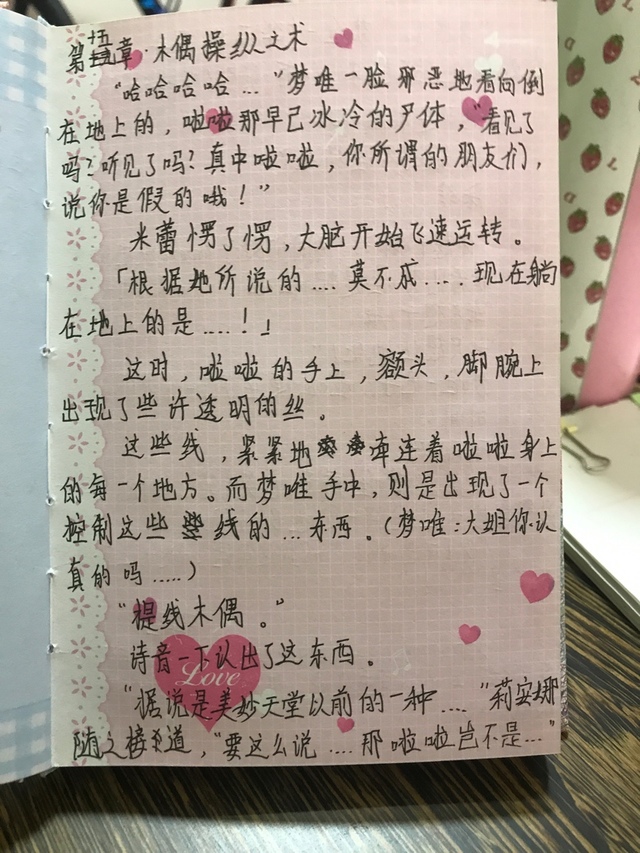 第十五章·木偶操纵之术
“哈哈哈哈…”梦唯一脸邪恶地看向倒
在地上的，啦啦那早已冰冷的尸体，“看见了
吗？听见了吗？真中啦啦，你所谓的朋友们，
说你是假的哦！”
米蕾愣了愣，大脑开始飞速运转。
「根据她所说的....莫不成....现在躺
在地上的是....！」
这时，啦啦的手上，额头，脚腕上
出现了些许透明的丝。
这些线，紧紧地牵连着啦啦身上
的每一个地方。而梦唯手中，则是出现了一个
控制这些线的...东西。（梦唯：大姐你认
真的吗.....）
“提线木偶。”
诗音一下认出了这东西。
“据说是美妙天堂以前的一种....“莉安娜
随之接道，“要这么说....那啦啦岂不是...”
Love